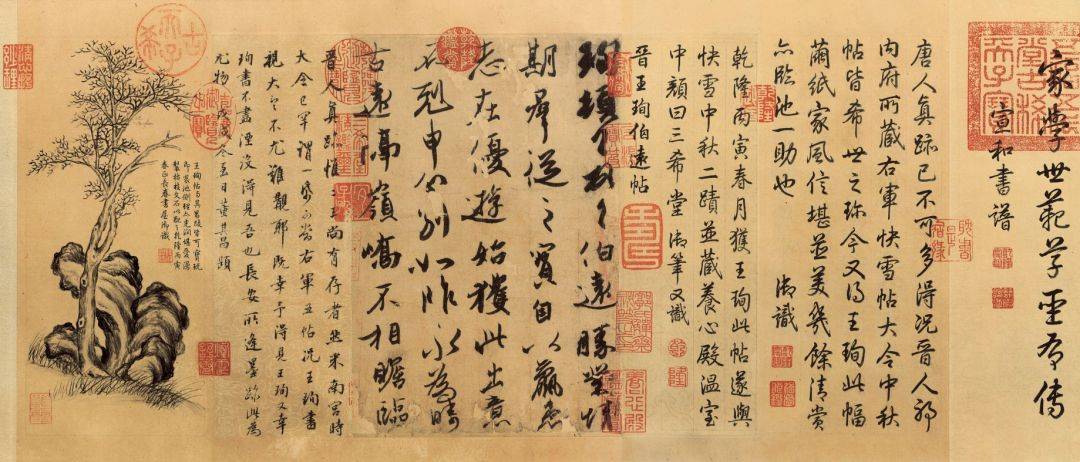 家學世範草聖有傳
宣和書譜
唐人真跡已不可多得況晉人耶
内府所藏右軍快雪帖大令中秋
帖皆希世之珍今又得王珣此幅
繭紙家風信堪並美幾餘清賞
亦臨池一助也 御識
乾隆丙寅春月獲王珣此帖遂與
快雪中秋二蹟並藏養心殿温室
中顏曰三希堂 御筆又識
乾隆
晉王珣伯遠帖
珣頓首頓首伯遠勝業情
期羣從之寶自以羸患
志在優遊始獲此出意
不剋申分别如昨永為疇
古遠隔嶺嶠不相瞻臨
晉人真跡惟二王尚有存者然米南宮時
大令已罕謂一紙可當右軍五帖況王珣書
視大令不尤難覯耶既幸予得見王珣又幸
珣書不盡湮沒得見吾也長安所逢墨跡此為
尤物戊戌冬至日董其昌題
王珣帖與其昌跋皆可寶玩
即裝池側理亦光潤堪愛漫
製枯枝文石以配之乾隆丙寅
春正長春書屋御識
古希天子